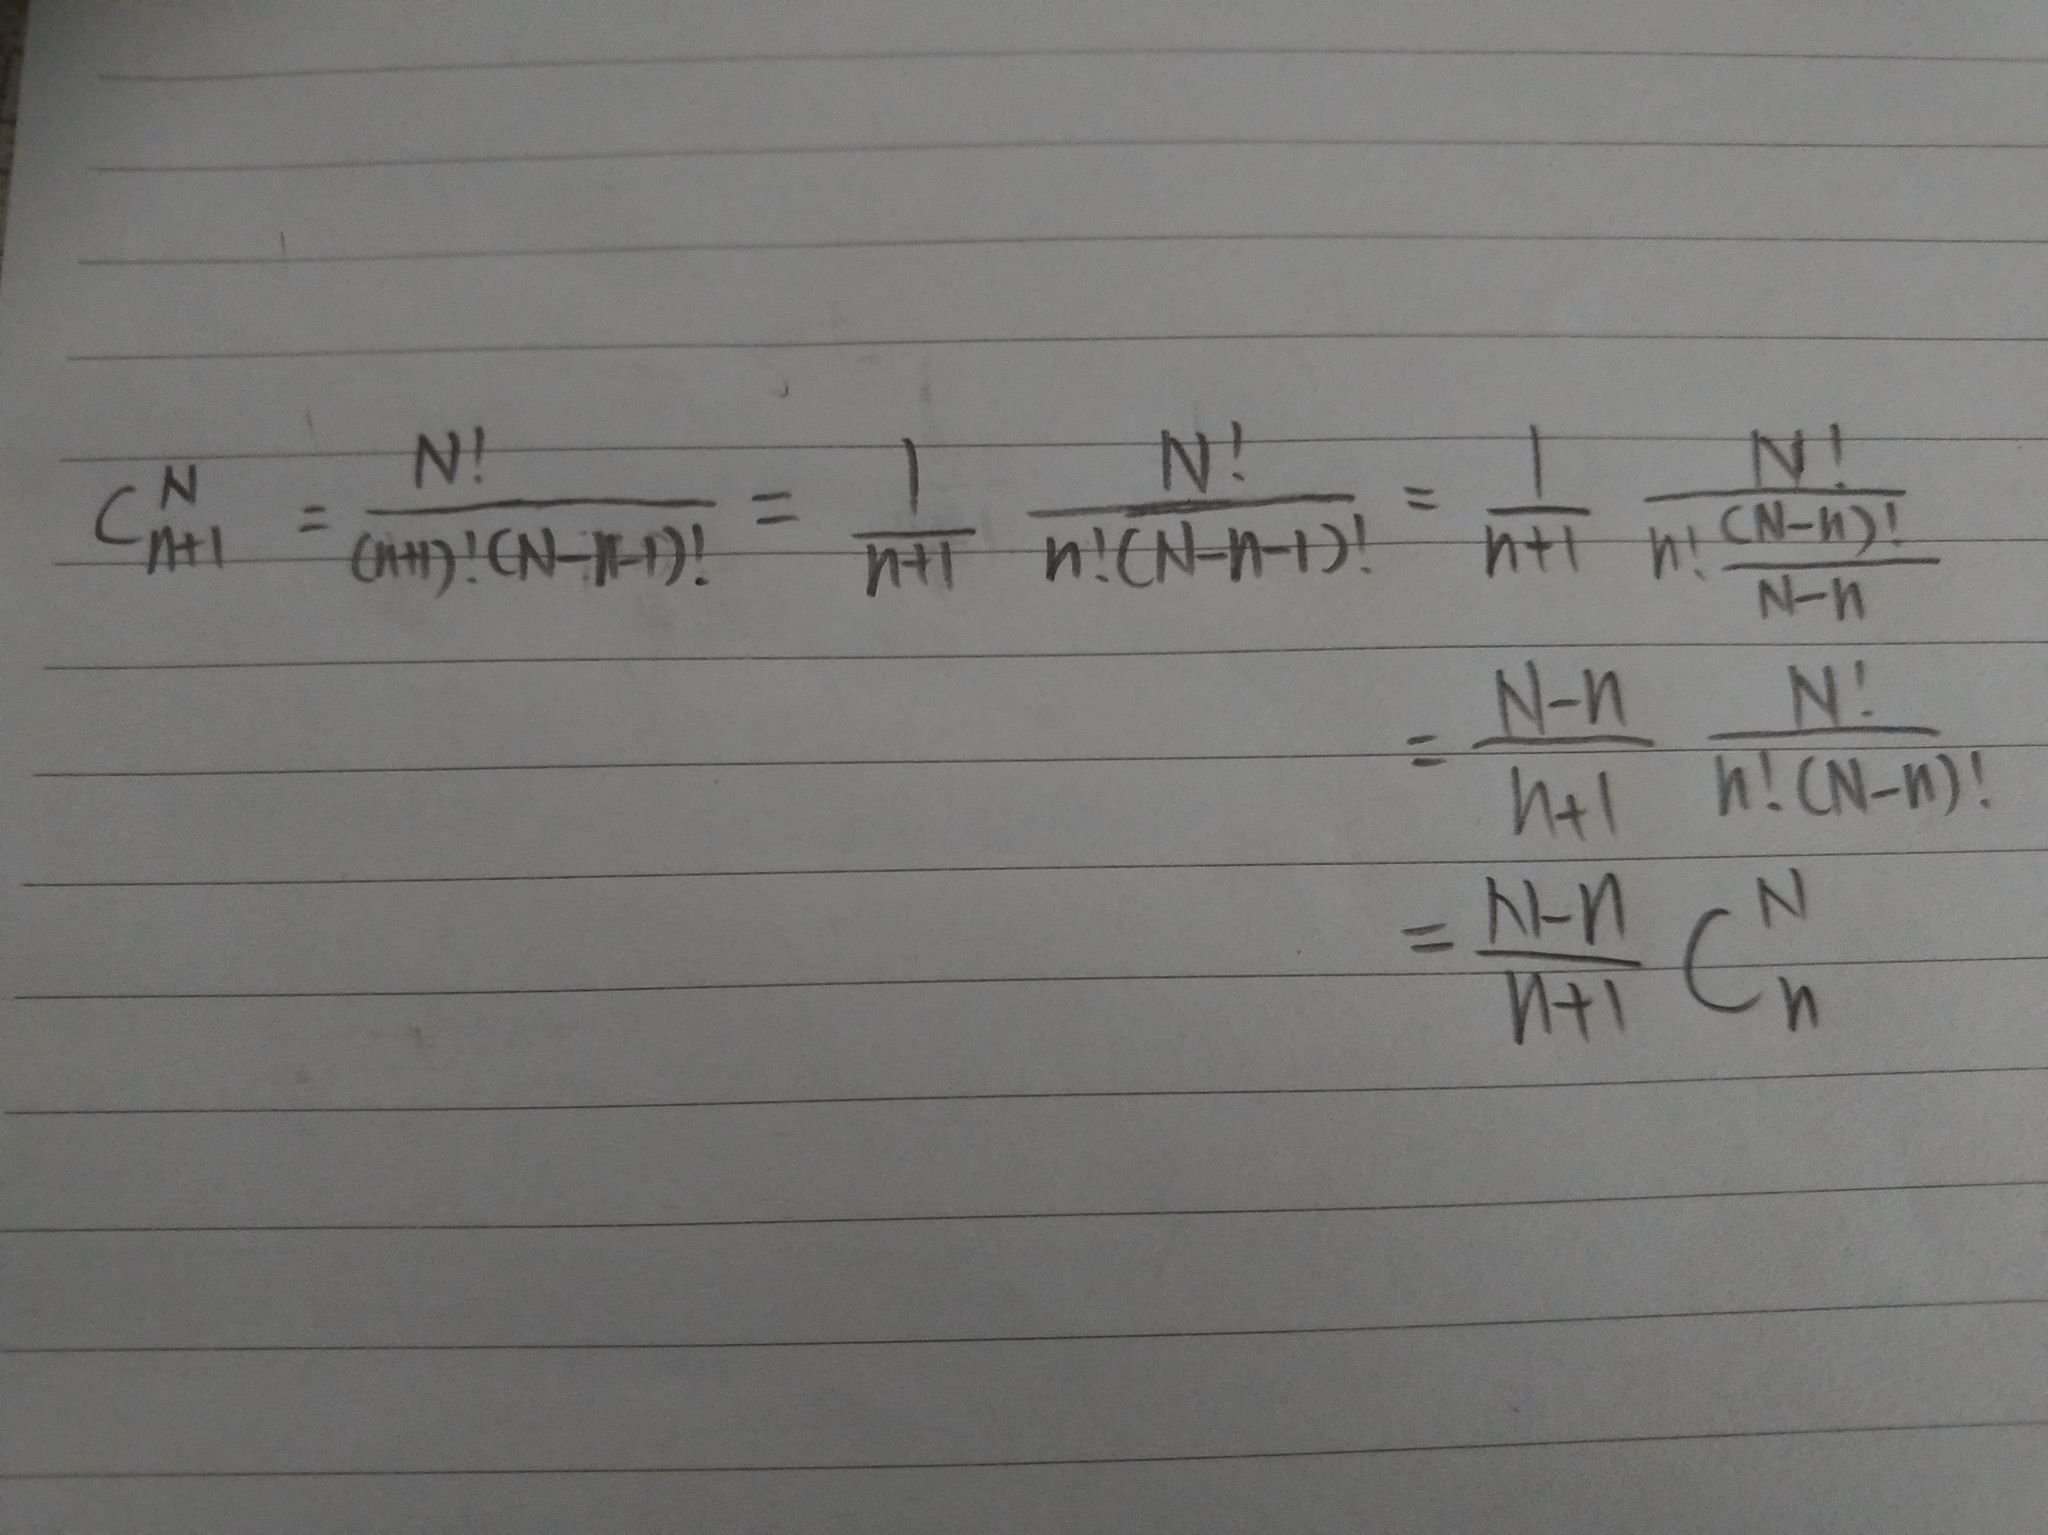 C^N_{n+1} = \frac{N!}{(n+1)!(N-n-1)!} = \frac{1}{n+1} \frac{N!}{n!(N-n-1)!} = \frac{1}{n+1} \frac{N!}{n!\frac{(N-n)!}{N-n}}
= \frac{N-n}{n+1} \frac{N!}{n!(N-n)!}
= \frac{N-n}{n+1} C^N_n